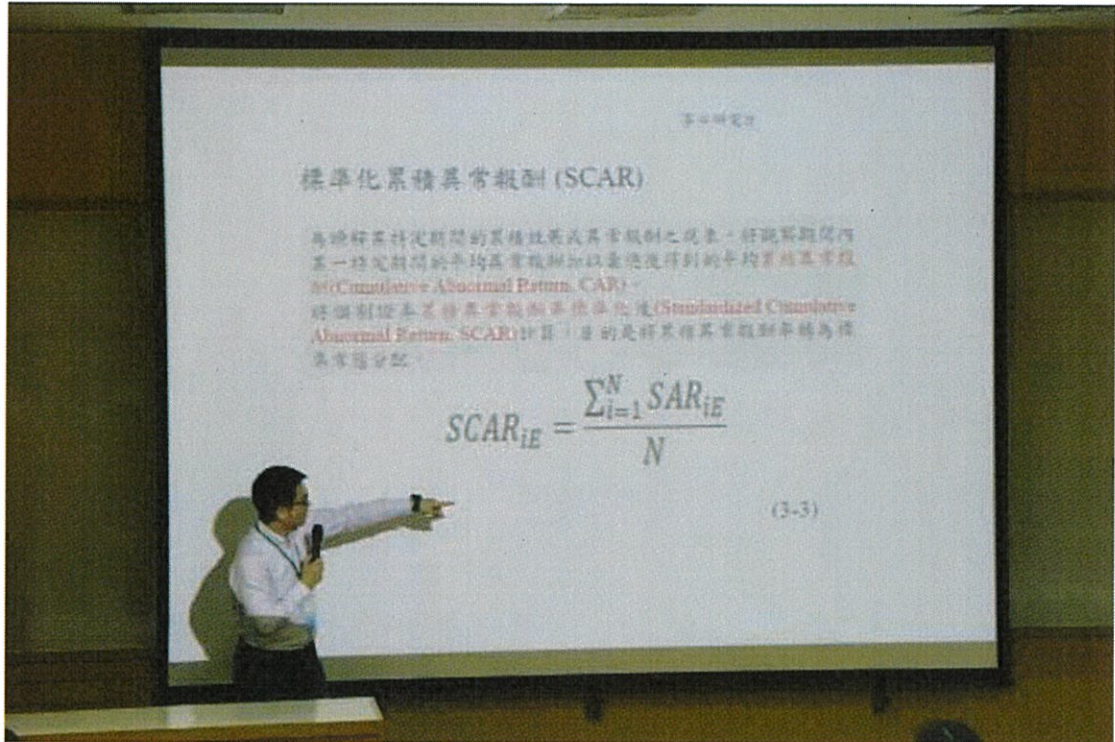 標準化累積異常報酬 (SCAR)
為瞭解某特定期間的累積效果或異常報酬之現象，將觀察期間內
某一特定期間的平均異常報酬加以累總後得到的平均累積異常報
酬(Cumulative Abnormal Return, CAR)。
將個別證券累積異常報酬率標準化後(Standardized Cumulative
Abnormal Return, SCAR)計算，目的是將累積異常報酬率轉為標
準常態分配。
SCAR_{iE} = \frac{\sum_{i=1}^{N} SAR_{iE}}{N}
(3-3)